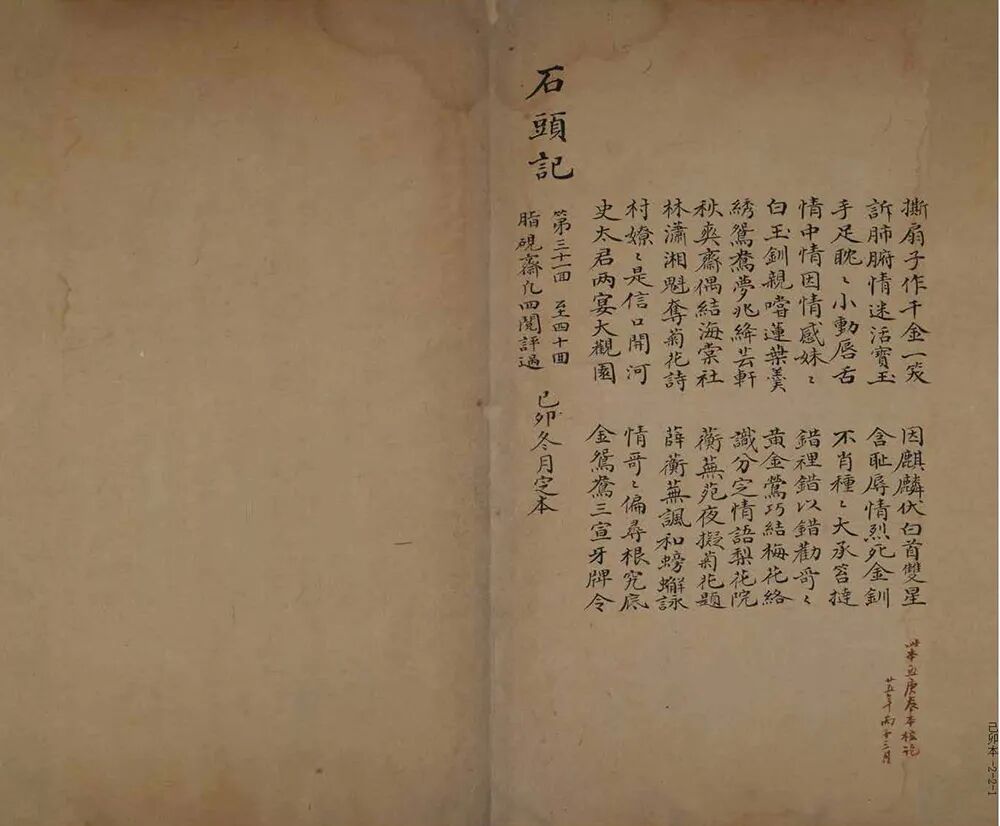 撕扇子作千金一笑　因麒麟伏白首雙星
訴肺腑情迷活寶玉　含耻辱情烈死金釧
手足眈〻小動唇舌　不肖種〻大承笞撻
情中情因情感妹〻　錯裡錯以錯勸哥〻
白玉釧親嚐蓮葉羹　黃金鶯巧結梅花絡
綉鴛鴦夢兆絳芸軒　識分定情語梨花院
秋爽齋偶結海棠社　蘅蕪苑夜擬菊花題
林瀟湘魁奪菊花詩　薛蘅蕪諷和螃蠏詠
村嫽〻是信口開河　情哥〻偏尋根究底
史太君兩宴大觀園　金鴛鴦三宣牙牌令
石頭記
第三十一回　至四十回
脂硯齋凡四閱評過
己卯冬月定本
此本五庚辰本校訖
廿五年丙子三月
己卯本-2-2-1